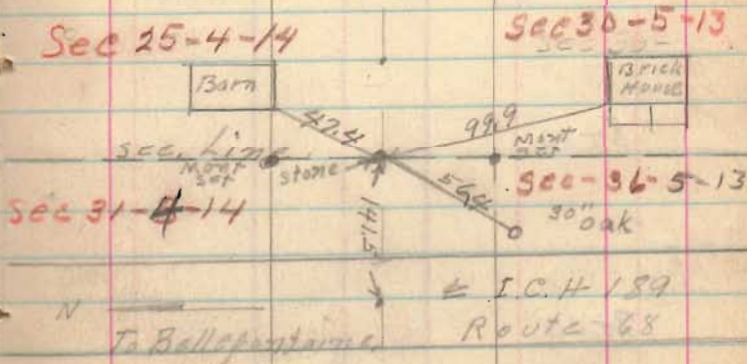 Sec 25-4-14
Sec 30-5-13
Barn
Brick House
47.4
99.9
Sec. Line
Mont Set
stone
Mont Set
56.4
Sec-36-5-13
Sec 31-4-14
30" Oak
141.5
N
I.C.H-189
To Bellefontaine
Route-68